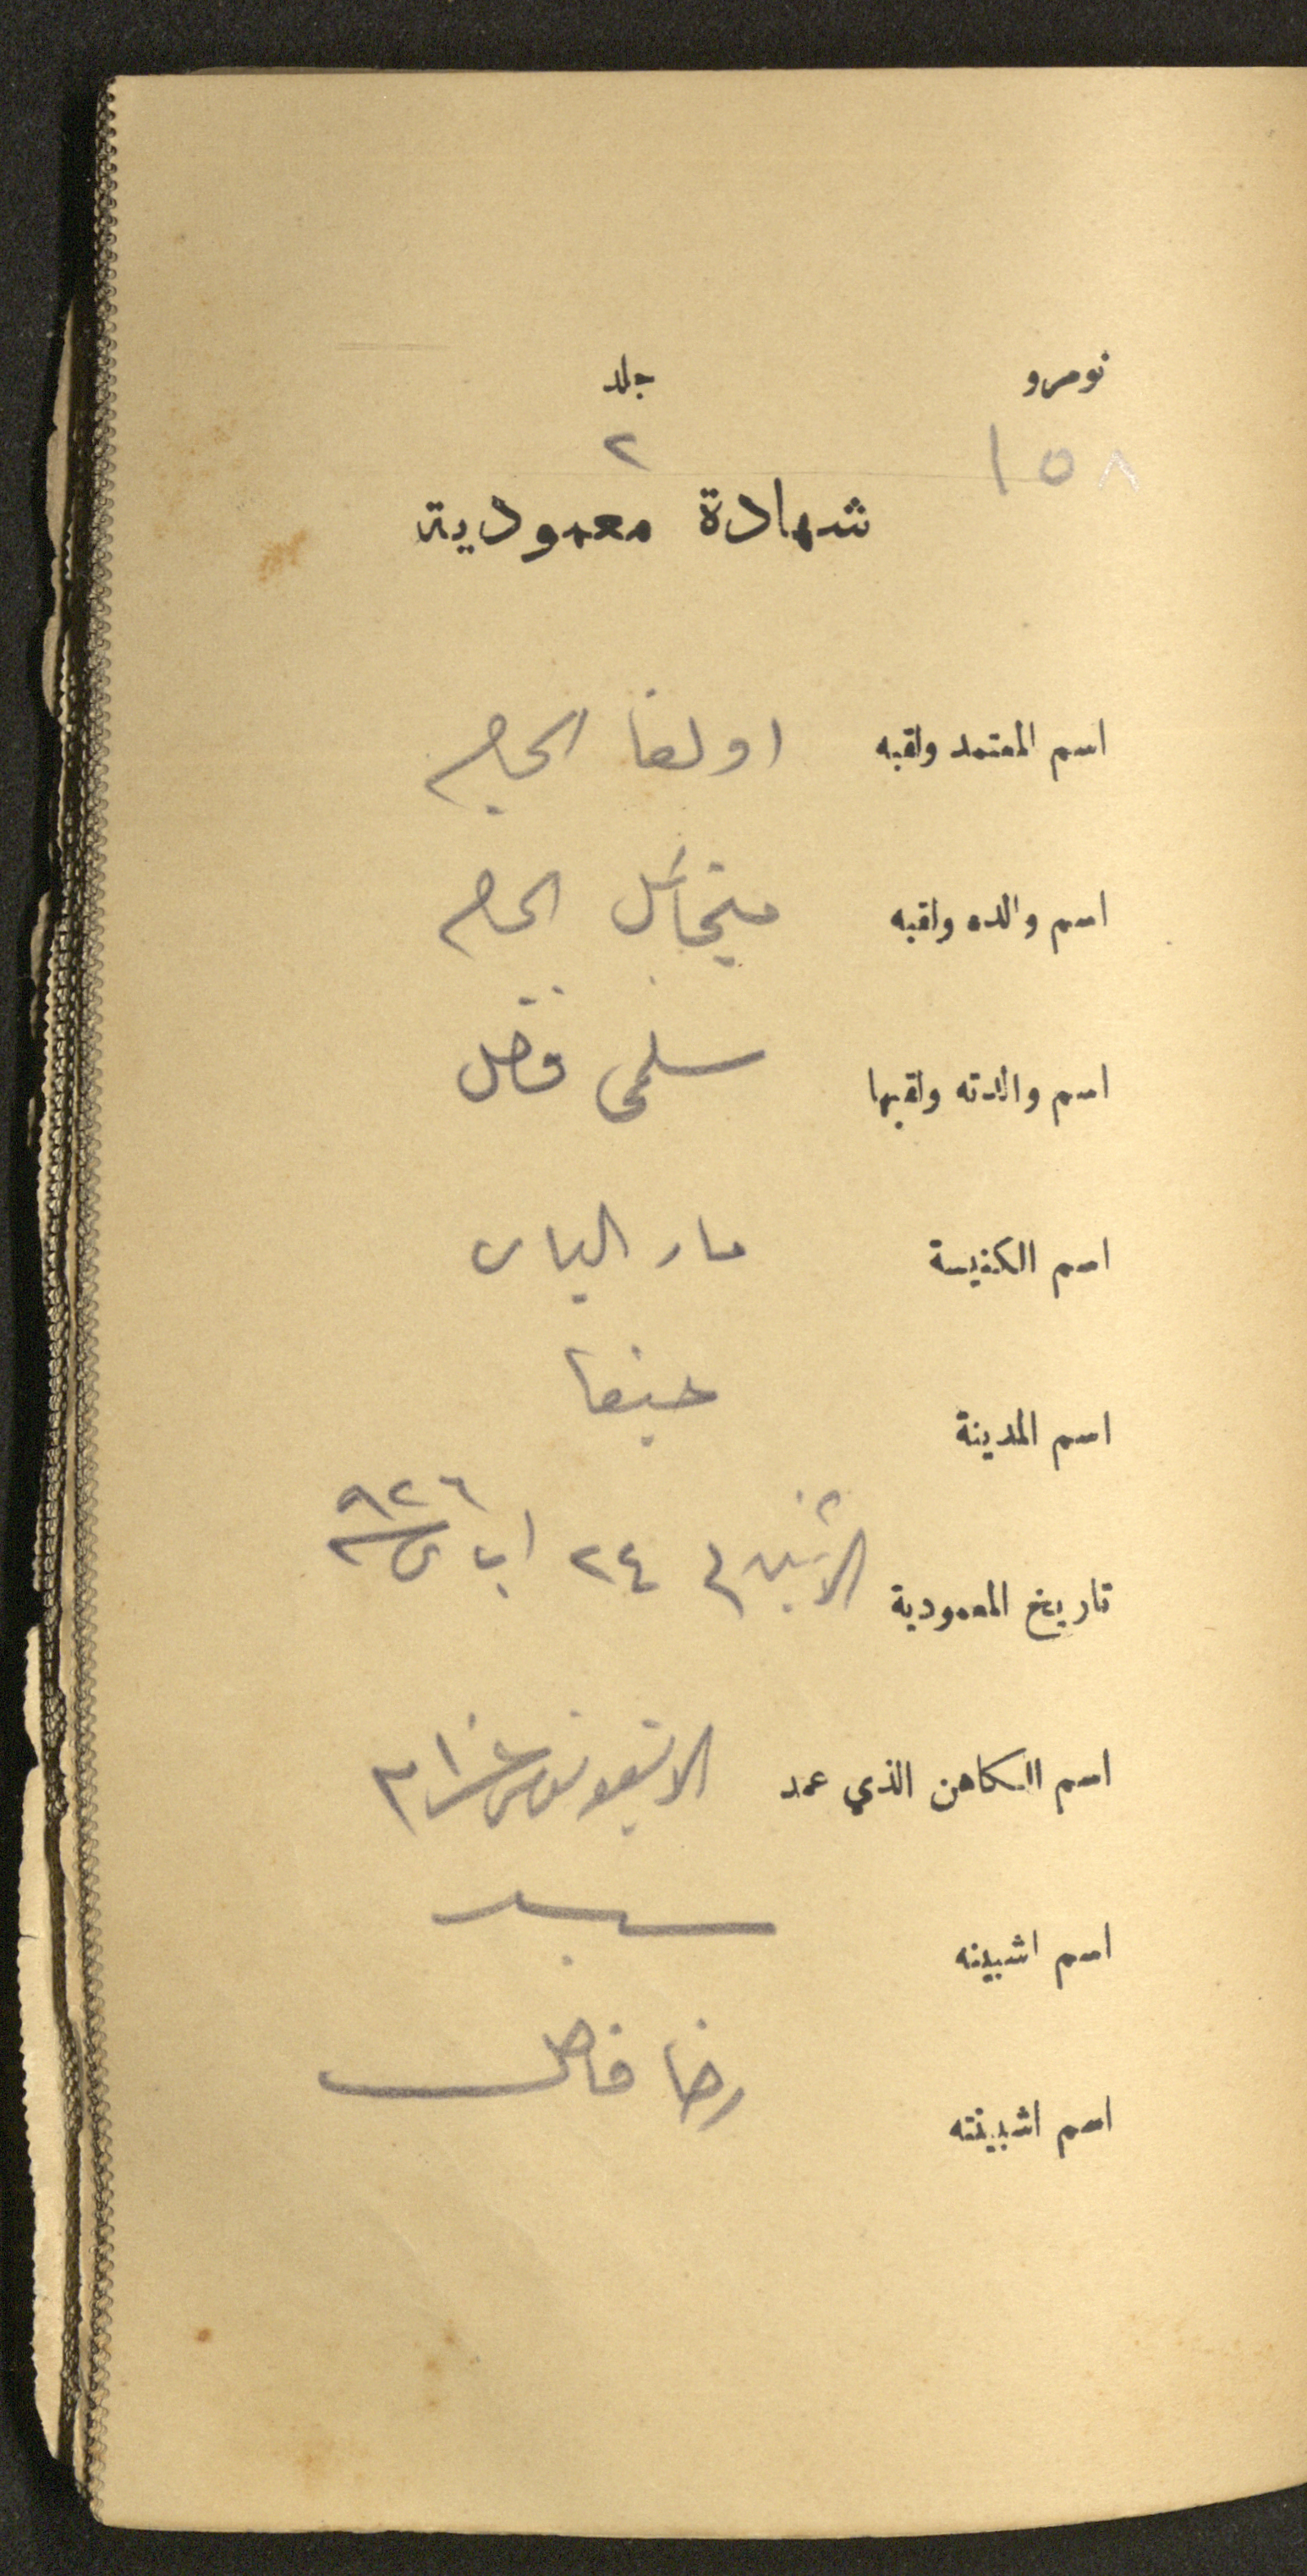 نومرو جلد
١٥٨ ٢
شهادة معمودية
اسم المعتمد ولقبه اولغا
اسم والده ولقبه ميخائيل
اسم والدته ولقبها سلمى
اسم الكنيسة مار الياس
اسم المدينة حيفا
تاريخ المعمودية الاثنين في ٢٤ اب سنة ٩٢٦
اسم الكاهن الذي عمد
اسم اشبينه
اسم اشبينته رضا فاضل